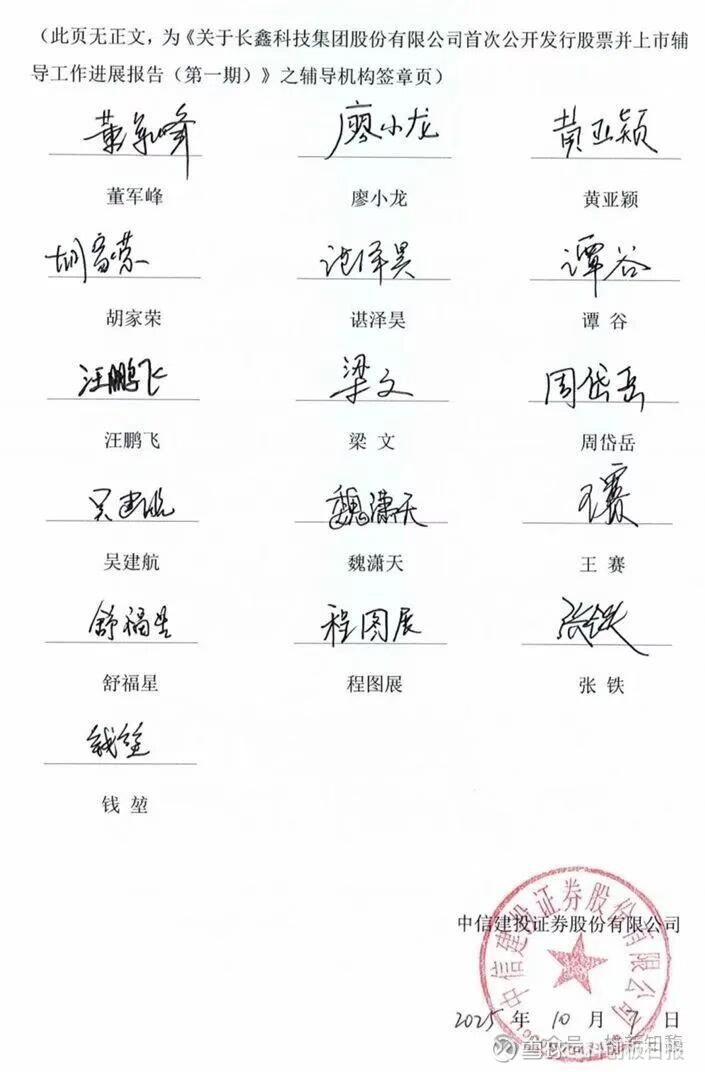 （此页无正文，为《关于长鑫科技集团股份有限公司首次公开发行股票并上市辅
导工作进展报告（第一期）》之辅导机构签章页）
董军峰 廖小龙 黄亚颖
董军峰 廖小龙 黄亚颖
胡家荣 谌泽昊 谭谷
胡家荣 谌泽昊 谭 谷
汪鹏飞 梁文 周岱岳
汪鹏飞 梁 文 周岱岳
吴建航 魏潇天 王赛
吴建航 魏潇天 王 赛
舒福星 程图展 张铁
舒福星 程图展 张 铁
钱堃
钱 堃
中信建投证券股份有限公司
中信建投证券股份有限公司
2025 年 10 月 7 日